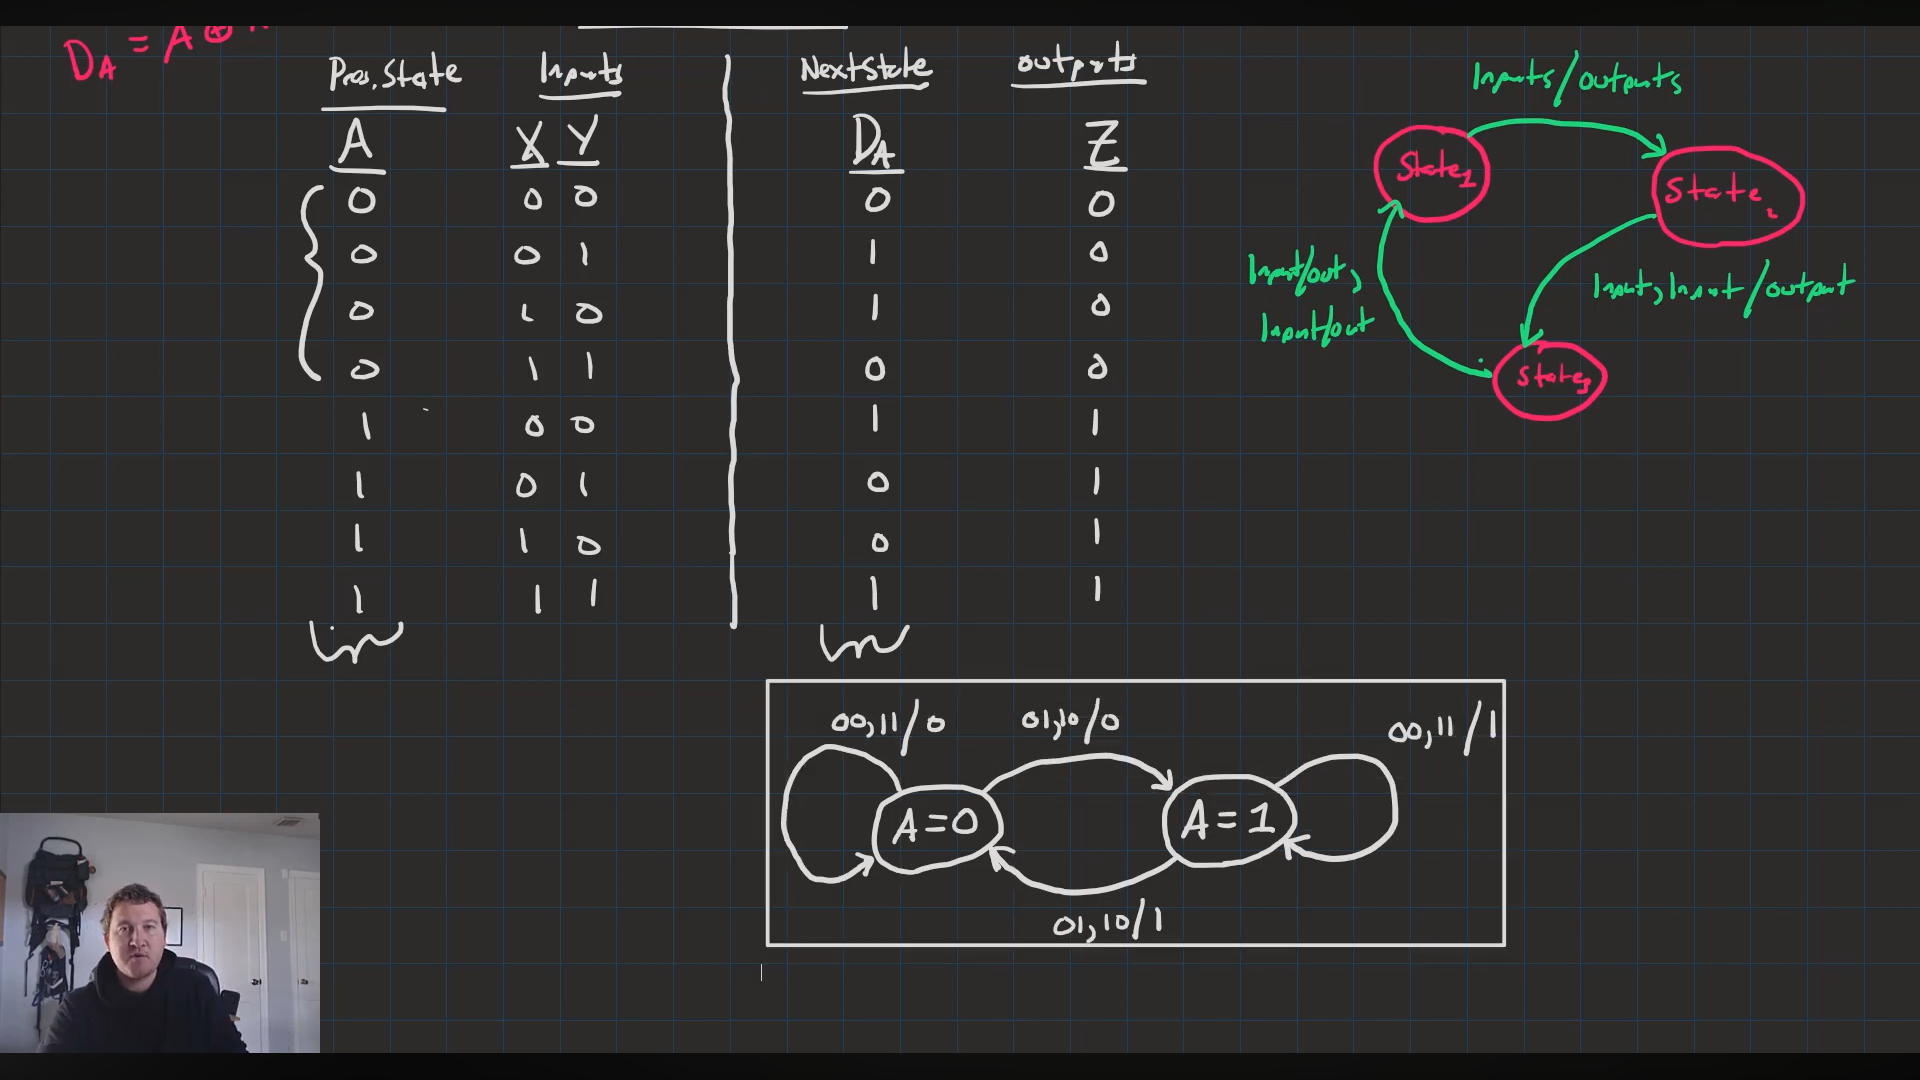 D_A = A ⊕
Pres. State Inputs Next State outputs
A X Y D_A Z
0 0 0 0 0
0 0 1 1 0
0 1 0 1 0
0 1 1 0 0
1 0 0 1 1
1 0 1 0 1
1 1 0 0 1
1 1 1 1 1
Inputs/outputs
State1
State2
Input/out,
Input/out
Input, Input/output
State3
00,11/0
01,10/0
00,11/1
A=0
A=1
01,10/1